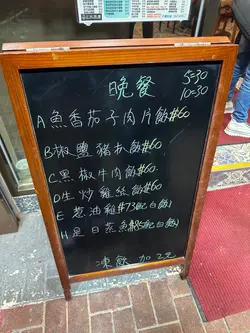 晚餐
5=30
10=30
A魚香茄子肉片飯#60
B椒鹽豬扒飯#60
C黑椒牛肉飯#60
D生炒雞絲飯#60
E 葱油雞#73配白飯1
H 是日蒸魚#85配白飯1
凍飲加2元